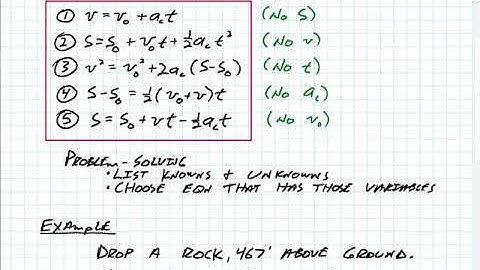 ① v = v₀ + a꜀t (No S)
② S = S₀ + v₀t + ½a꜀t² (No v)
③ v² = v₀² + 2a꜀(S-S₀) (No t)
④ S-S₀ = ½(v₀+v)t (No a꜀)
⑤ S = S₀ + vt - ½a꜀t (No v₀)
PROBLEM-SOLVING
• LIST KNOWNS & UNKNOWNS
• CHOOSE EQN THAT HAS THOSE VARIABLES
EXAMPLE
DROP A ROCK, 467' ABOVE GROUND.